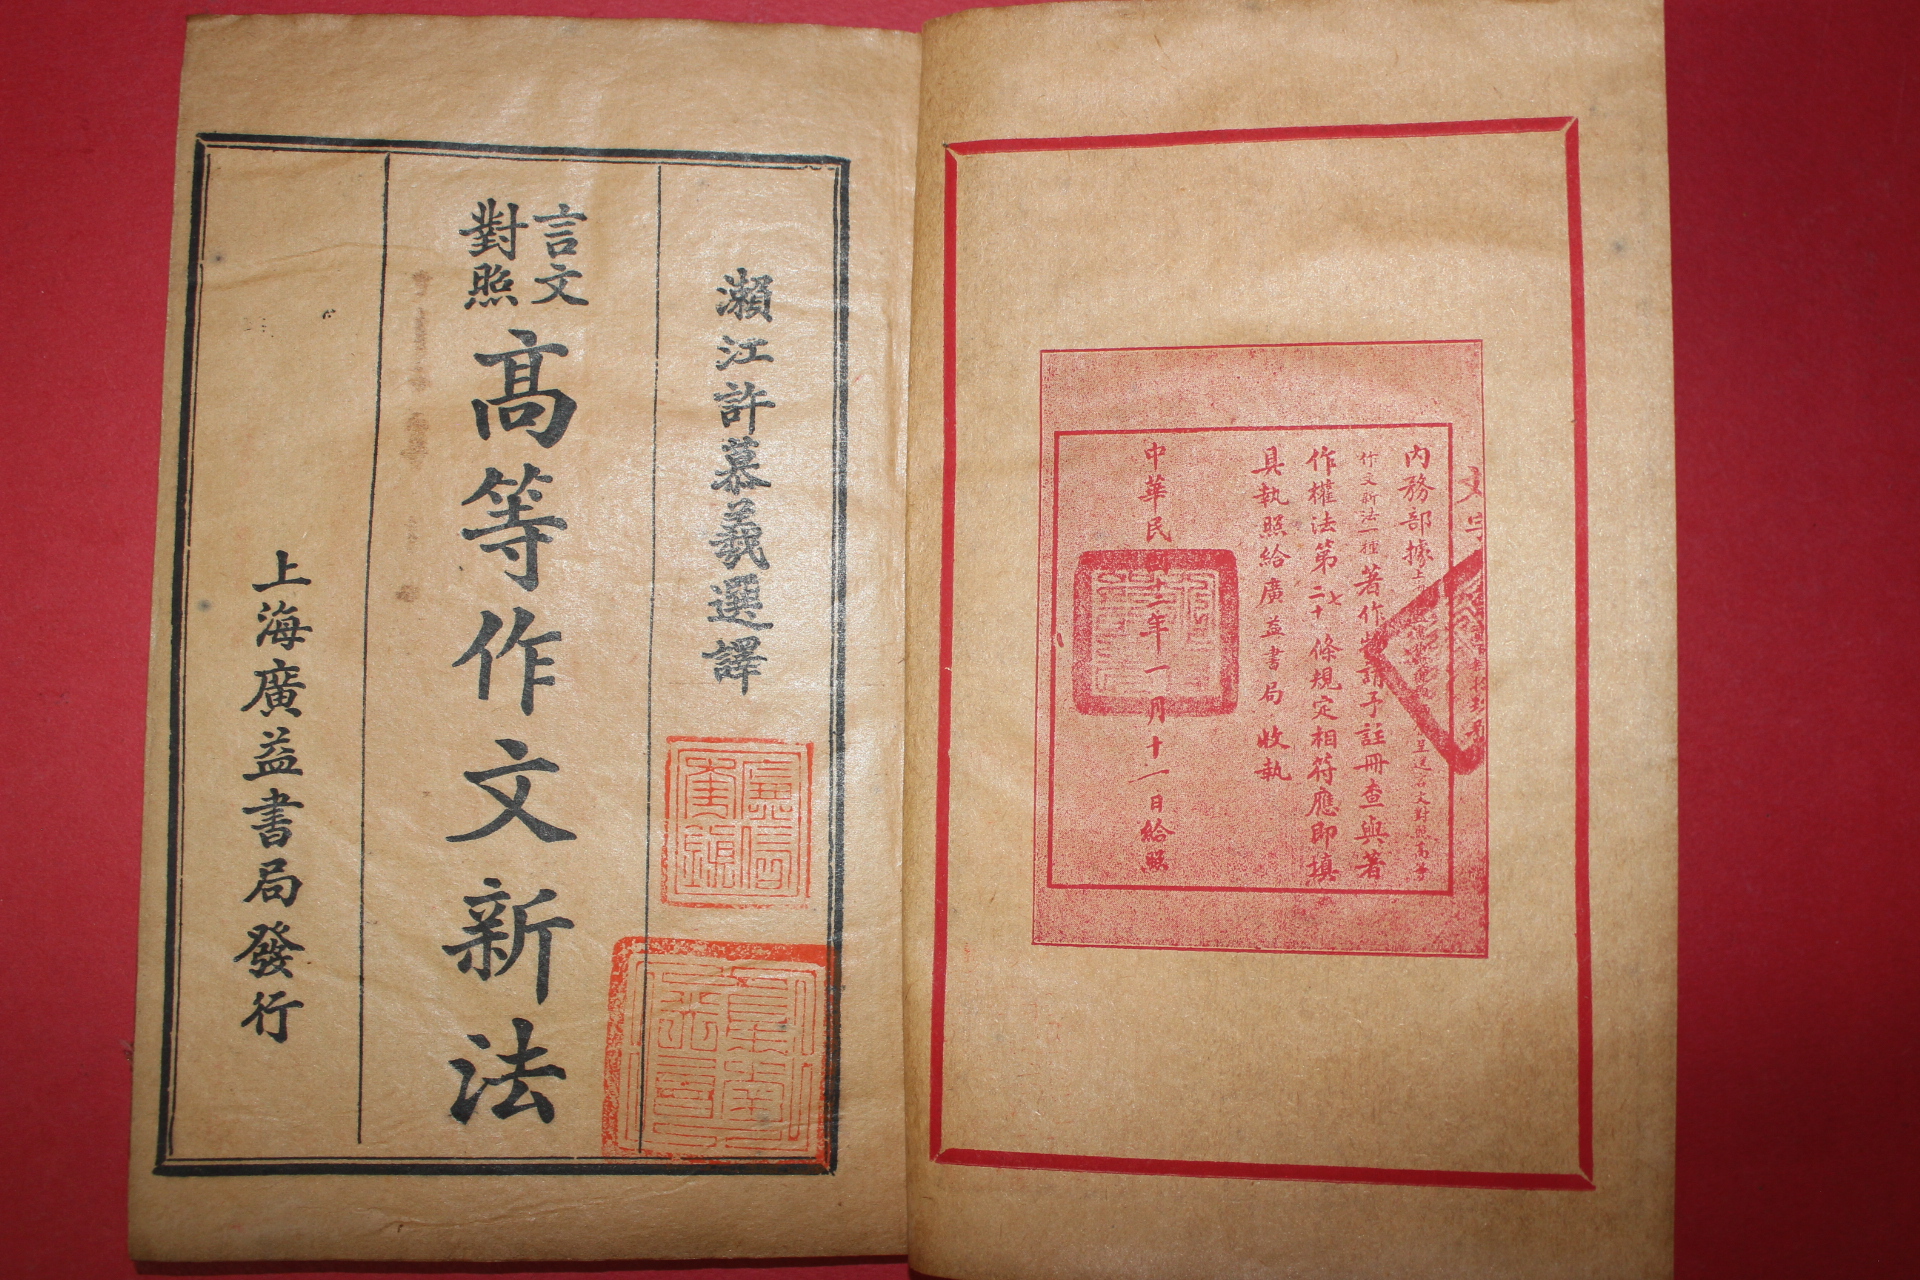 內務部據
呈送言文對照高等
作文新法一種著作物請予註冊查與著
作權法第二十七條規定相符應即填
具執照給廣益書局收執
中華民國十二年一月十一日給照
瀨江許慕羲選譯
言文對照
高等作文新法
上海廣益書局發行